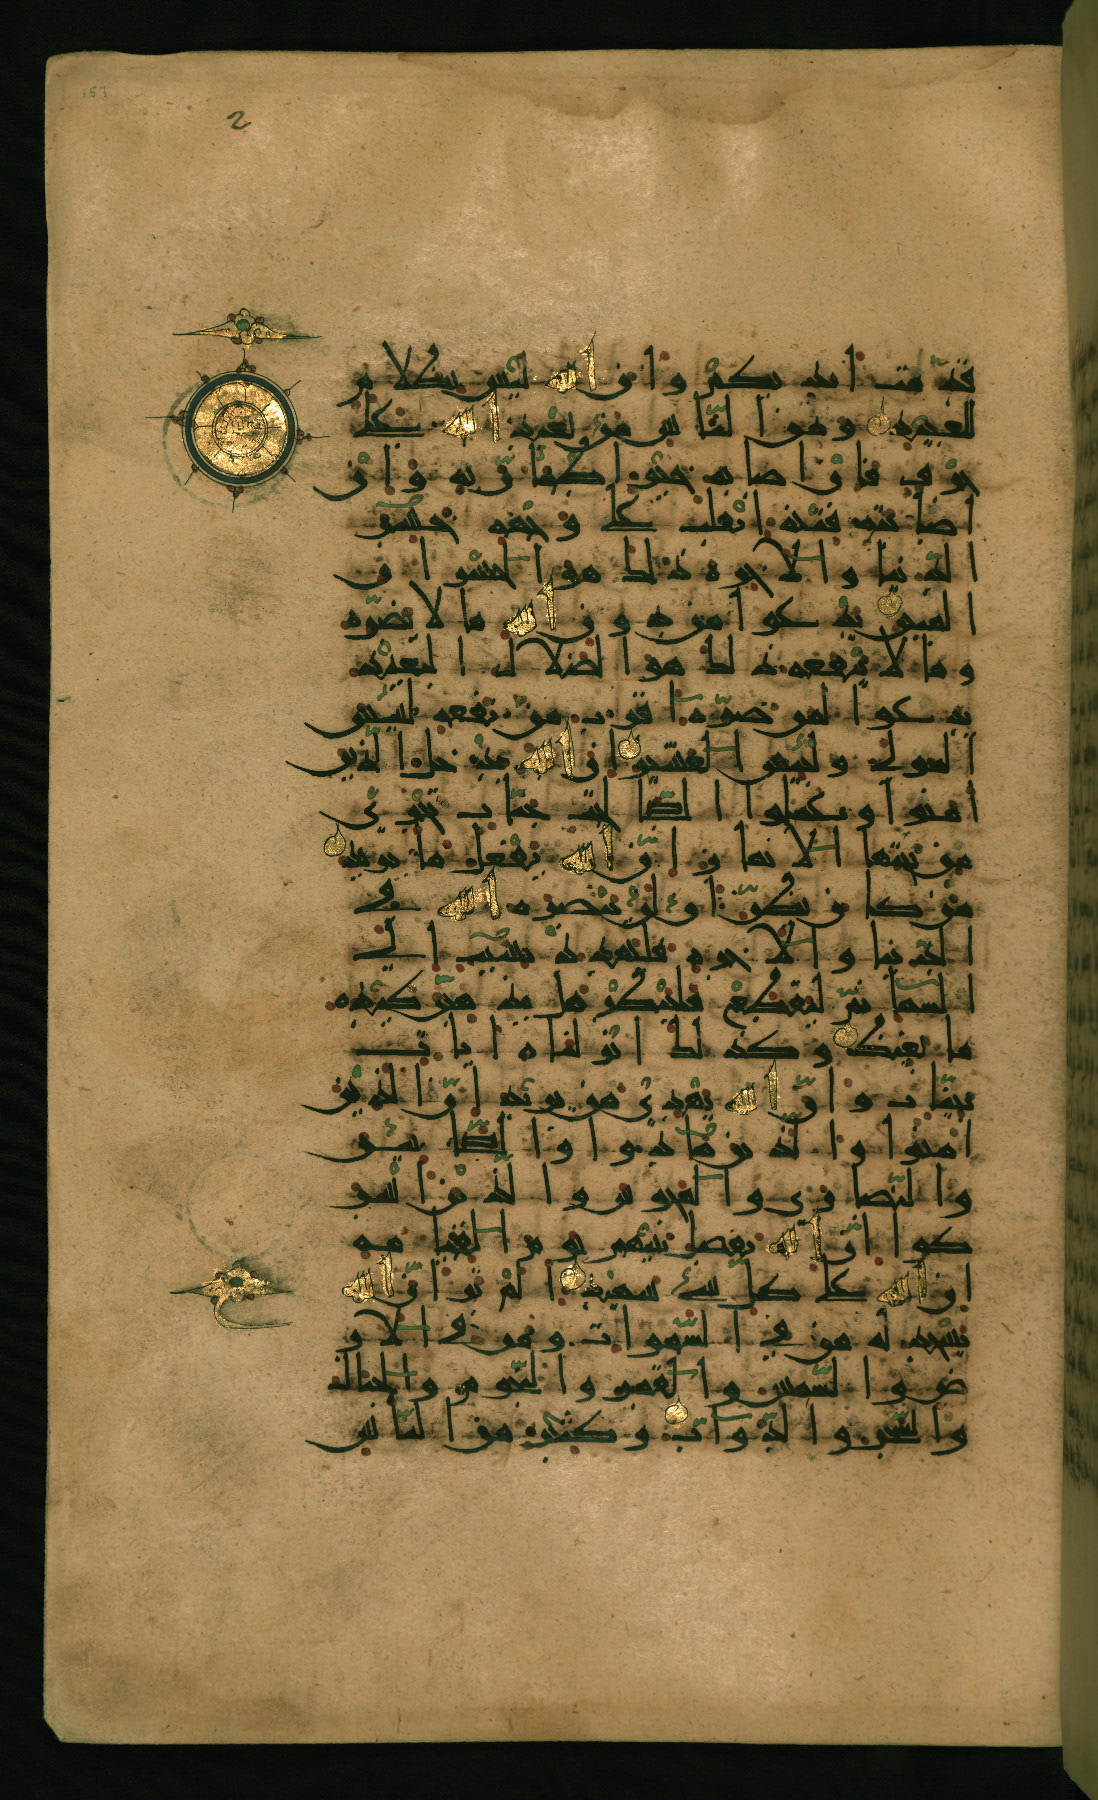 قدمت يداك وان الله ليس بظلام
للعبيد ومن الناس من يعبد الله على
حرف فان اصابه خير اطمان به وان
اصابته فتنة انقلب على وجهه خسر
الدنيا والاخرة ذلك هو الخسران
المبين يدعوا من دون الله ما لا يضره
وما لا ينفعه ذلك هو الضلال البعيد
يدعوا لمن ضره اقرب من نفعه لبئس
المولى ولبئس العشير ان الله يدخل الذين
امنوا وعملوا الصالحات جنات تجرى
من تحتها الانهار ان الله يفعل ما يريد
من كان يظن ان لن ينصره الله فى
الدنيا والاخرة فليمدد بسبب الى
السما ثم ليقطع فلينظر هل يذهبن كيده
ما يغيظ وكذلك انزلناه ايات
بينات وان الله يهدى من يريد ان الذين
امنوا والذين هادوا والصابئين
والنصارى والمجوس والذين اشر
كوا ان الله يفصل بينهم يوم القيمة
ان الله على كل شى شهيد الم تر ان الله
يسجد له من فى السموات ومن فى الار
ض والشمس والقمر والنجوم والجبال
والشجر والدواب وكثير من الناس